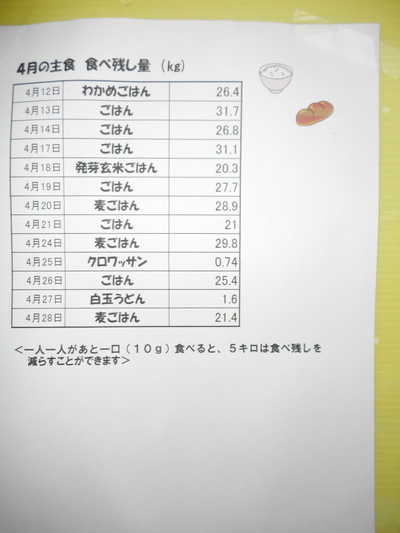 4月の主食 食べ残し量 (kg)
4月12日 わかめごはん 26.4
4月13日 ごはん 31.7
4月14日 ごはん 26.8
4月17日 ごはん 31.1
4月18日 発芽玄米ごはん 20.3
4月19日 ごはん 27.7
4月20日 麦ごはん 28.9
4月21日 ごはん 21
4月24日 麦ごはん 29.8
4月25日 クロワッサン 0.74
4月26日 ごはん 25.4
4月27日 白玉うどん 1.6
4月28日 麦ごはん 21.4
＜一人一人があと一口（１０ｇ）食べると、５キロは食べ残しを
減らすことができます＞